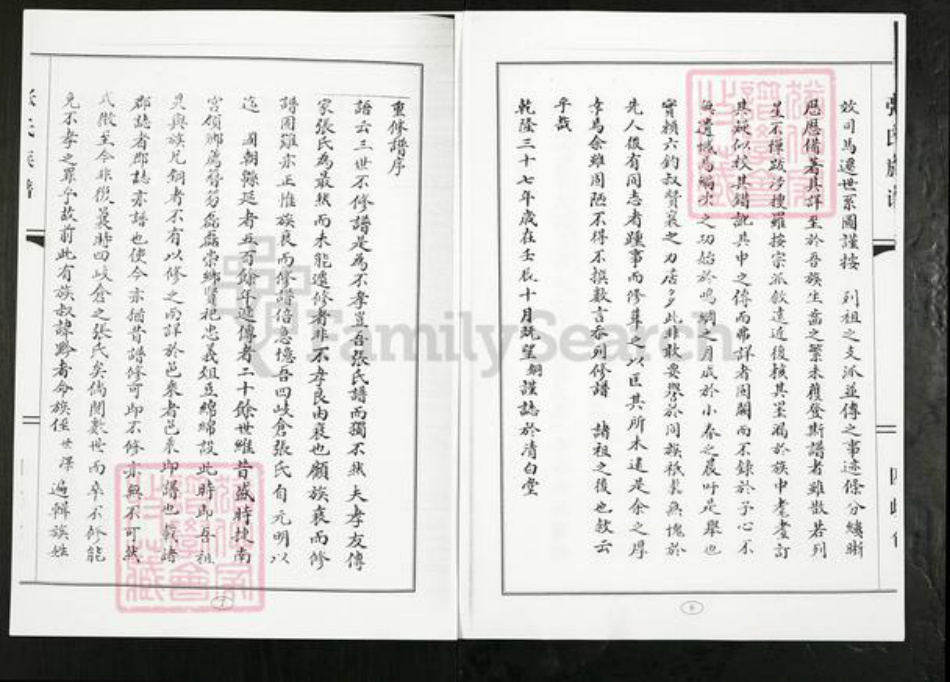 效司馬遷世系圖謹按 列祖之支派並傳之事迹條分縷晰
歷歷備著其詳至於吾族生齒之繁未獲登斯譜者雖散若列
星不憚跋涉搜羅按宗派敘遠近復核其墨漏於族中耄耋訂
其族似校其錯訛其中之傳而弗詳者闕闕而不錄於予心不
無遺憾焉編次之功始於鳴蜩之月成於小春之辰吁是舉也
實賴六鈞叔贊襄之力居多此非敢要譽於同族祇求無愧於
先人後有同志者踵事而修葺之以匡其所未逮是余之厚
幸焉余雖固陋不得不撰數言忝列修譜 諸祖之後也敘云
乎哉
乾隆三十七年歲在壬辰十月既望 嗣謹誌於清白堂
6
重修譜序
語云三世不修譜是為不孝豈吾張氏譜而獨不然夫孝友傳
家張氏為最然而未能遽修者非不孝良由衰也顧族衰而修
譜固難亦正惟族衰而修譜倍急憶吾四岐倉張氏自元明以
迄 國朝綿延者五百餘年遞傳者二十餘世維昔盛時捷南
宮領鄉薦簪笏磊磊崇鄉賢祀忠義俎豆綿綿設此時即吾祖
其與族兄銅者不有以修之而詳於邑乘者邑乘即譜也載諸
郡誌者郡誌亦譜也使今亦猶昔譜修可即不修亦無不可然
式微至今非復曩時四岐倉之張氏矣倘閱數世而卒不修能
免不孝之罪乎故前此有族叔諱黔者命族侄世澤遍輯族姓
7
張氏族譜
FamilySearch